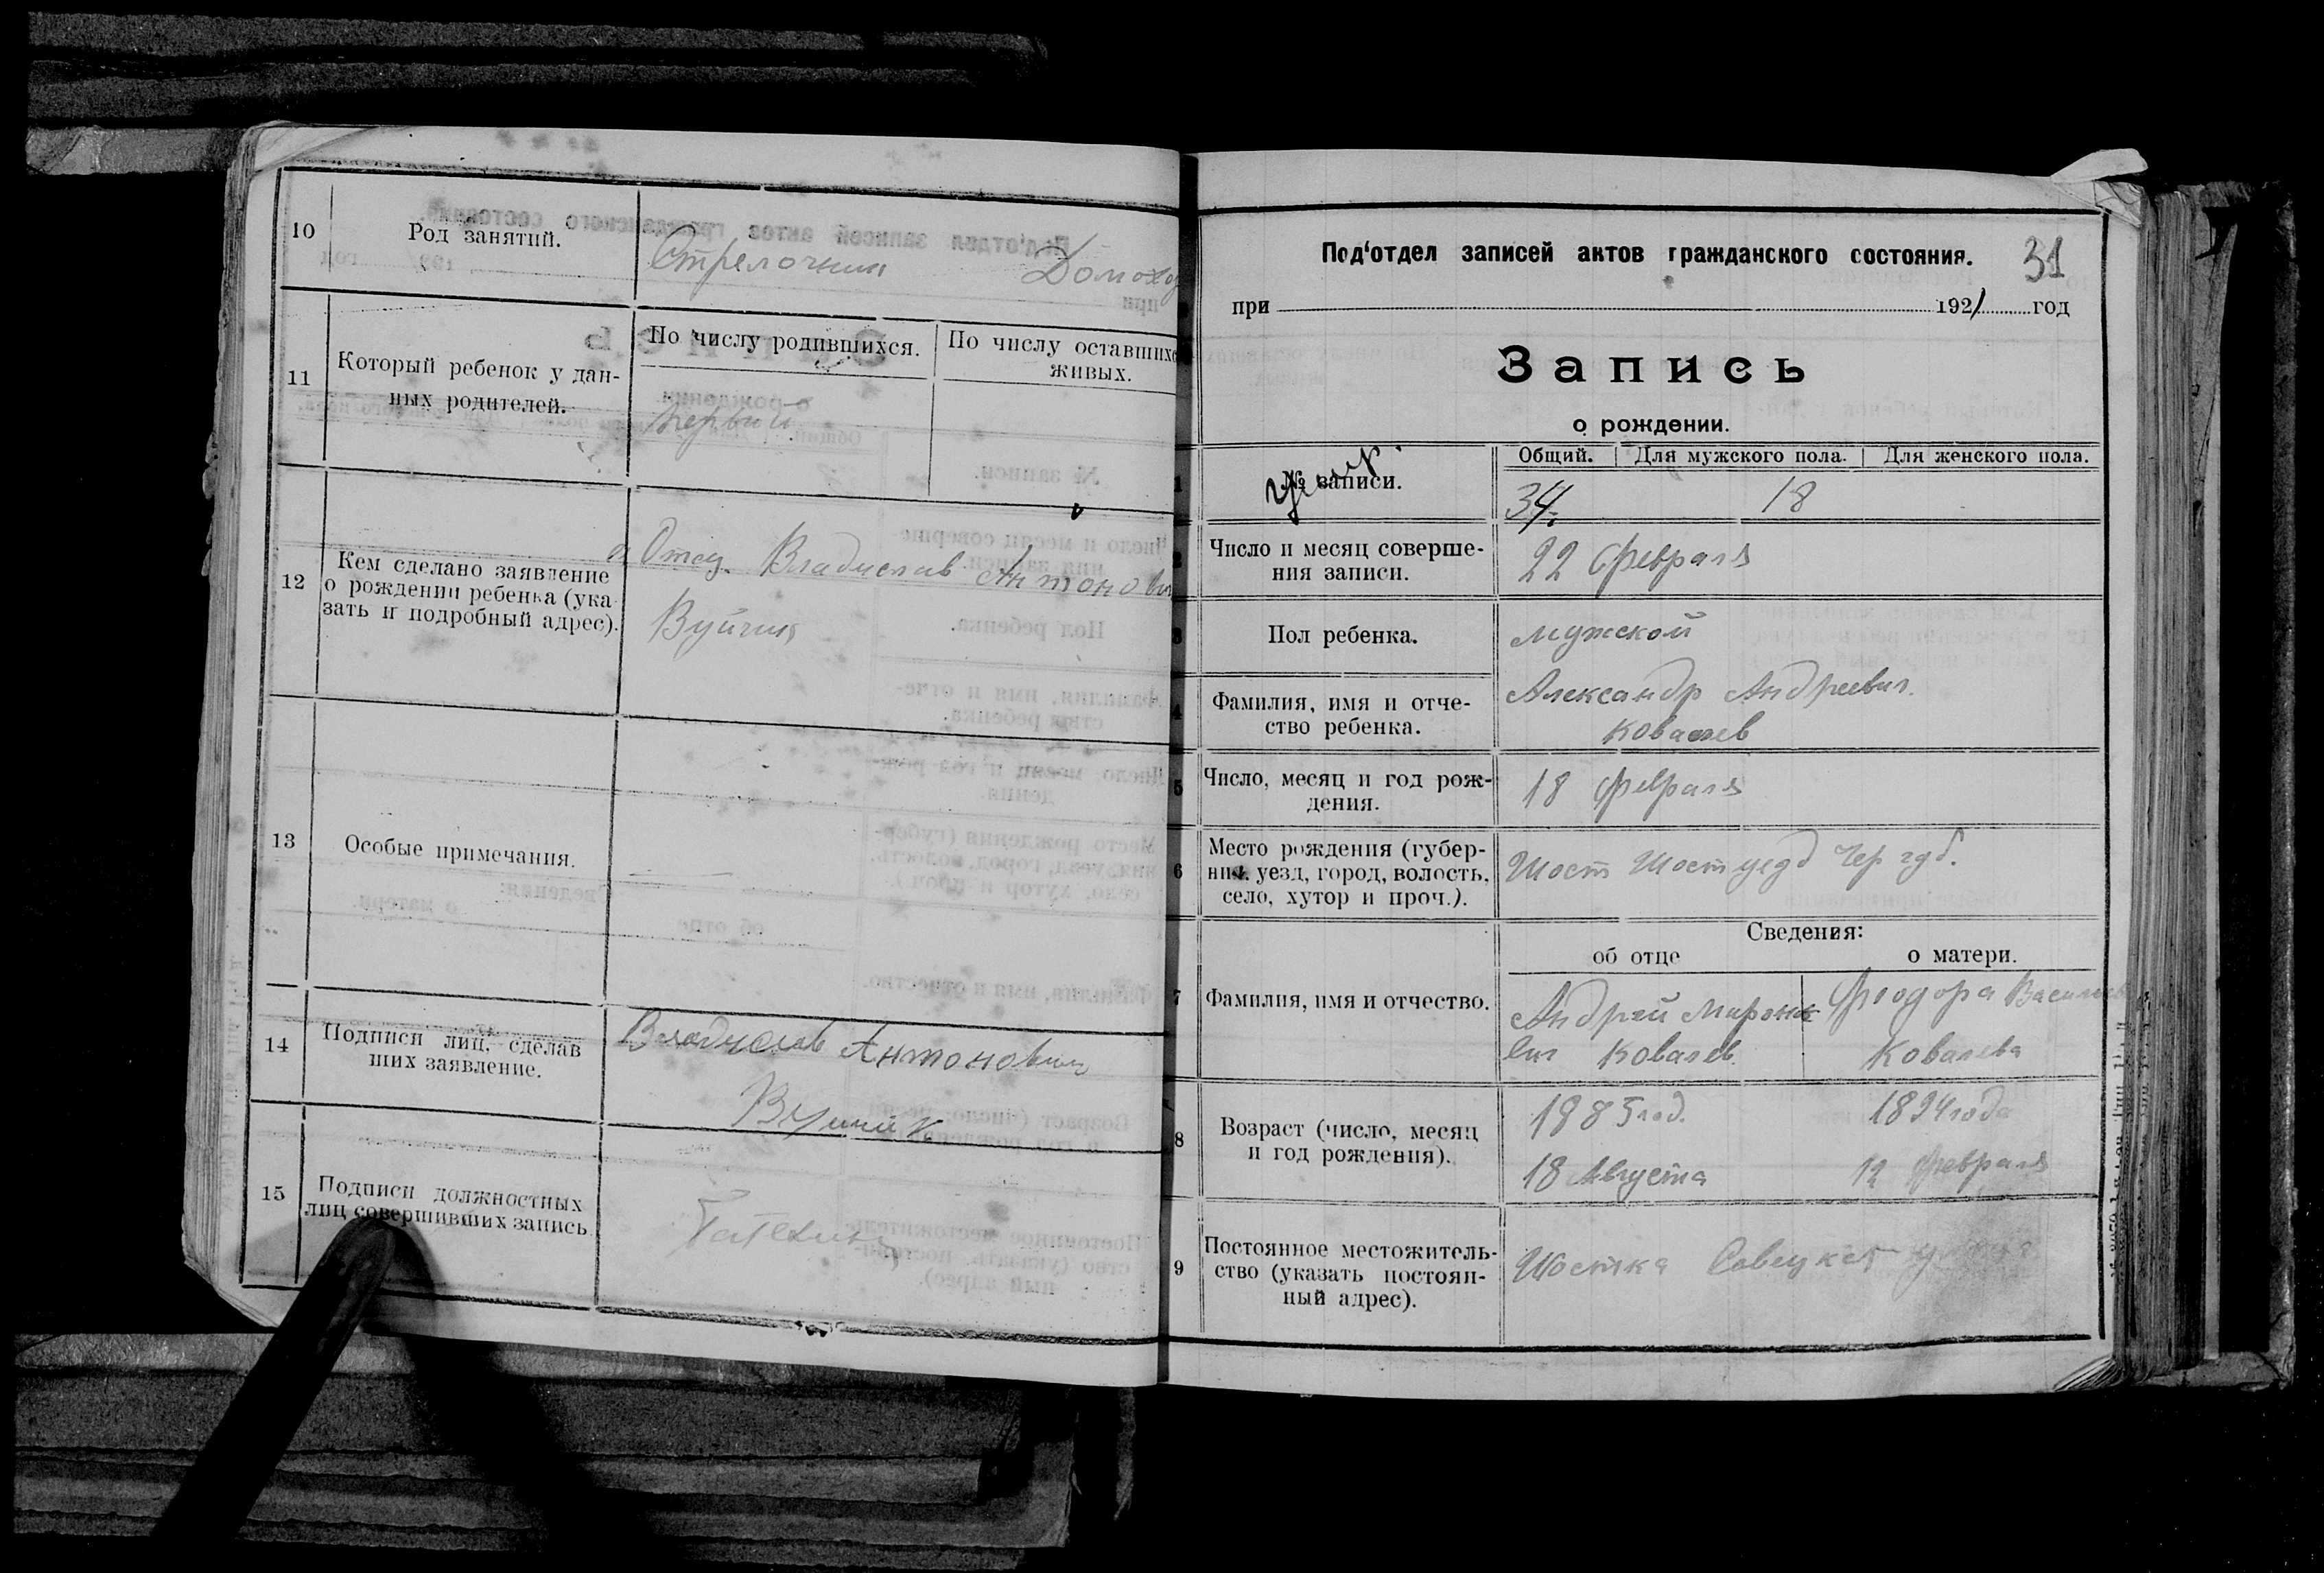 10
Род занятий.
Стрелочник Домохоз
11
Который ребенок у дан-
ных родителей.
По числу родившихся.
По числу оставшихс
живых.
первый
12
Кем сделано заявление
о рождении ребенка (ука
зать и подробный адрес).
Отец Владислав Антонови
Вуйчик
13
Особые примечания.
14
Подписи лиц, сделав
ших заявление.
Владислав Антонович
15
Подписи должностных
лиц совершивших запись.
Под'отдел записей актов гражданского состояния.
31
при 1921 год
Запись
о рождении.
Общий. Для мужского пола. Для женского пола.
1
№ записи.
умер.
34. 18
2
Число и месяц соверше-
ния записи.
22 февраля
3
Пол ребенка.
мужской
4
Фамилия, имя и отче-
ство ребенка.
Александр Андреевич.
Ковалев
5
Число, месяц и год рож-
дения.
18 февраля
6
Место рождения (губер-
ния, уезд, город, волость,
село, хутор и проч.).
Шост Шост уезд Чер губ.
Сведения:
об отце о матери.
7
Фамилия, имя и отчество.
Андрей Мироно
вич Ковалев
Феодора Василье
Ковалева
8
Возраст (число, месяц
и год рождения).
1885 год.
18 Августа
1894 года
12 февраля
9
Постоянное местожитель-
ство (указать постоян-
ный адрес).
Шостка Совецкая